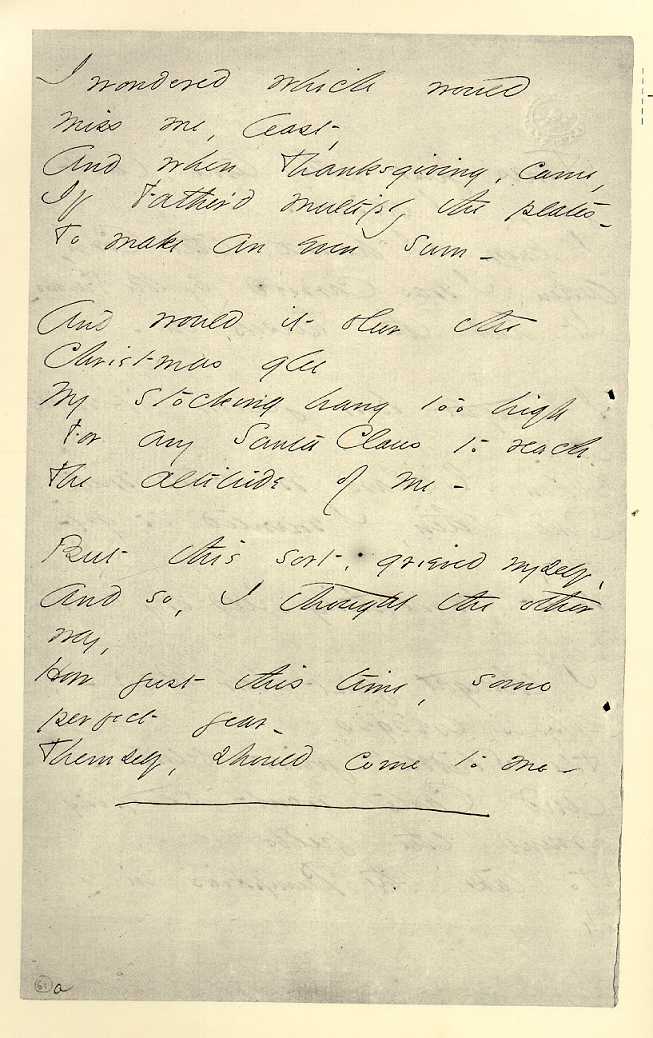 I wondered which would
miss me, least,
And when Thanksgiving, came,
If Father'd multiply the plates –
To make an even Sum –
And would it blur the
Christmas glee
My Stocking hang too high
For any Santa Claus to reach
The altitude of me –
But this sort, grieved myself,
And so, I thought the other
way,
How just this time, some
perfect year –
Themself, should come to me –
a